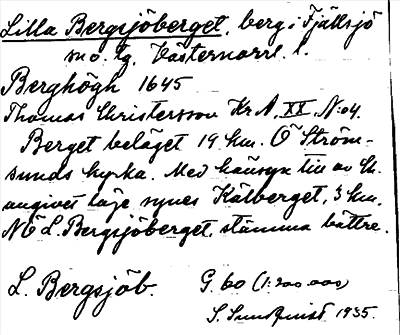 Lilla Bergsjöberget, berg i Fjällsjö
sn o. tg. Västernorrl. l.
Berghögh 1645
Thomas Christersson Kr A, XX, N:o 4.
Berget beläget 19 km. Ö Ström-
sunds kyrka. Med hänsyn till av Ch.
angivet läge synes Kälberget, 3 km.
NÖ L. Bergsjöberget, stämma bättre.
L. Bergsjöb. G. 60 (1:200 000)
S. Sundqvist 1935.